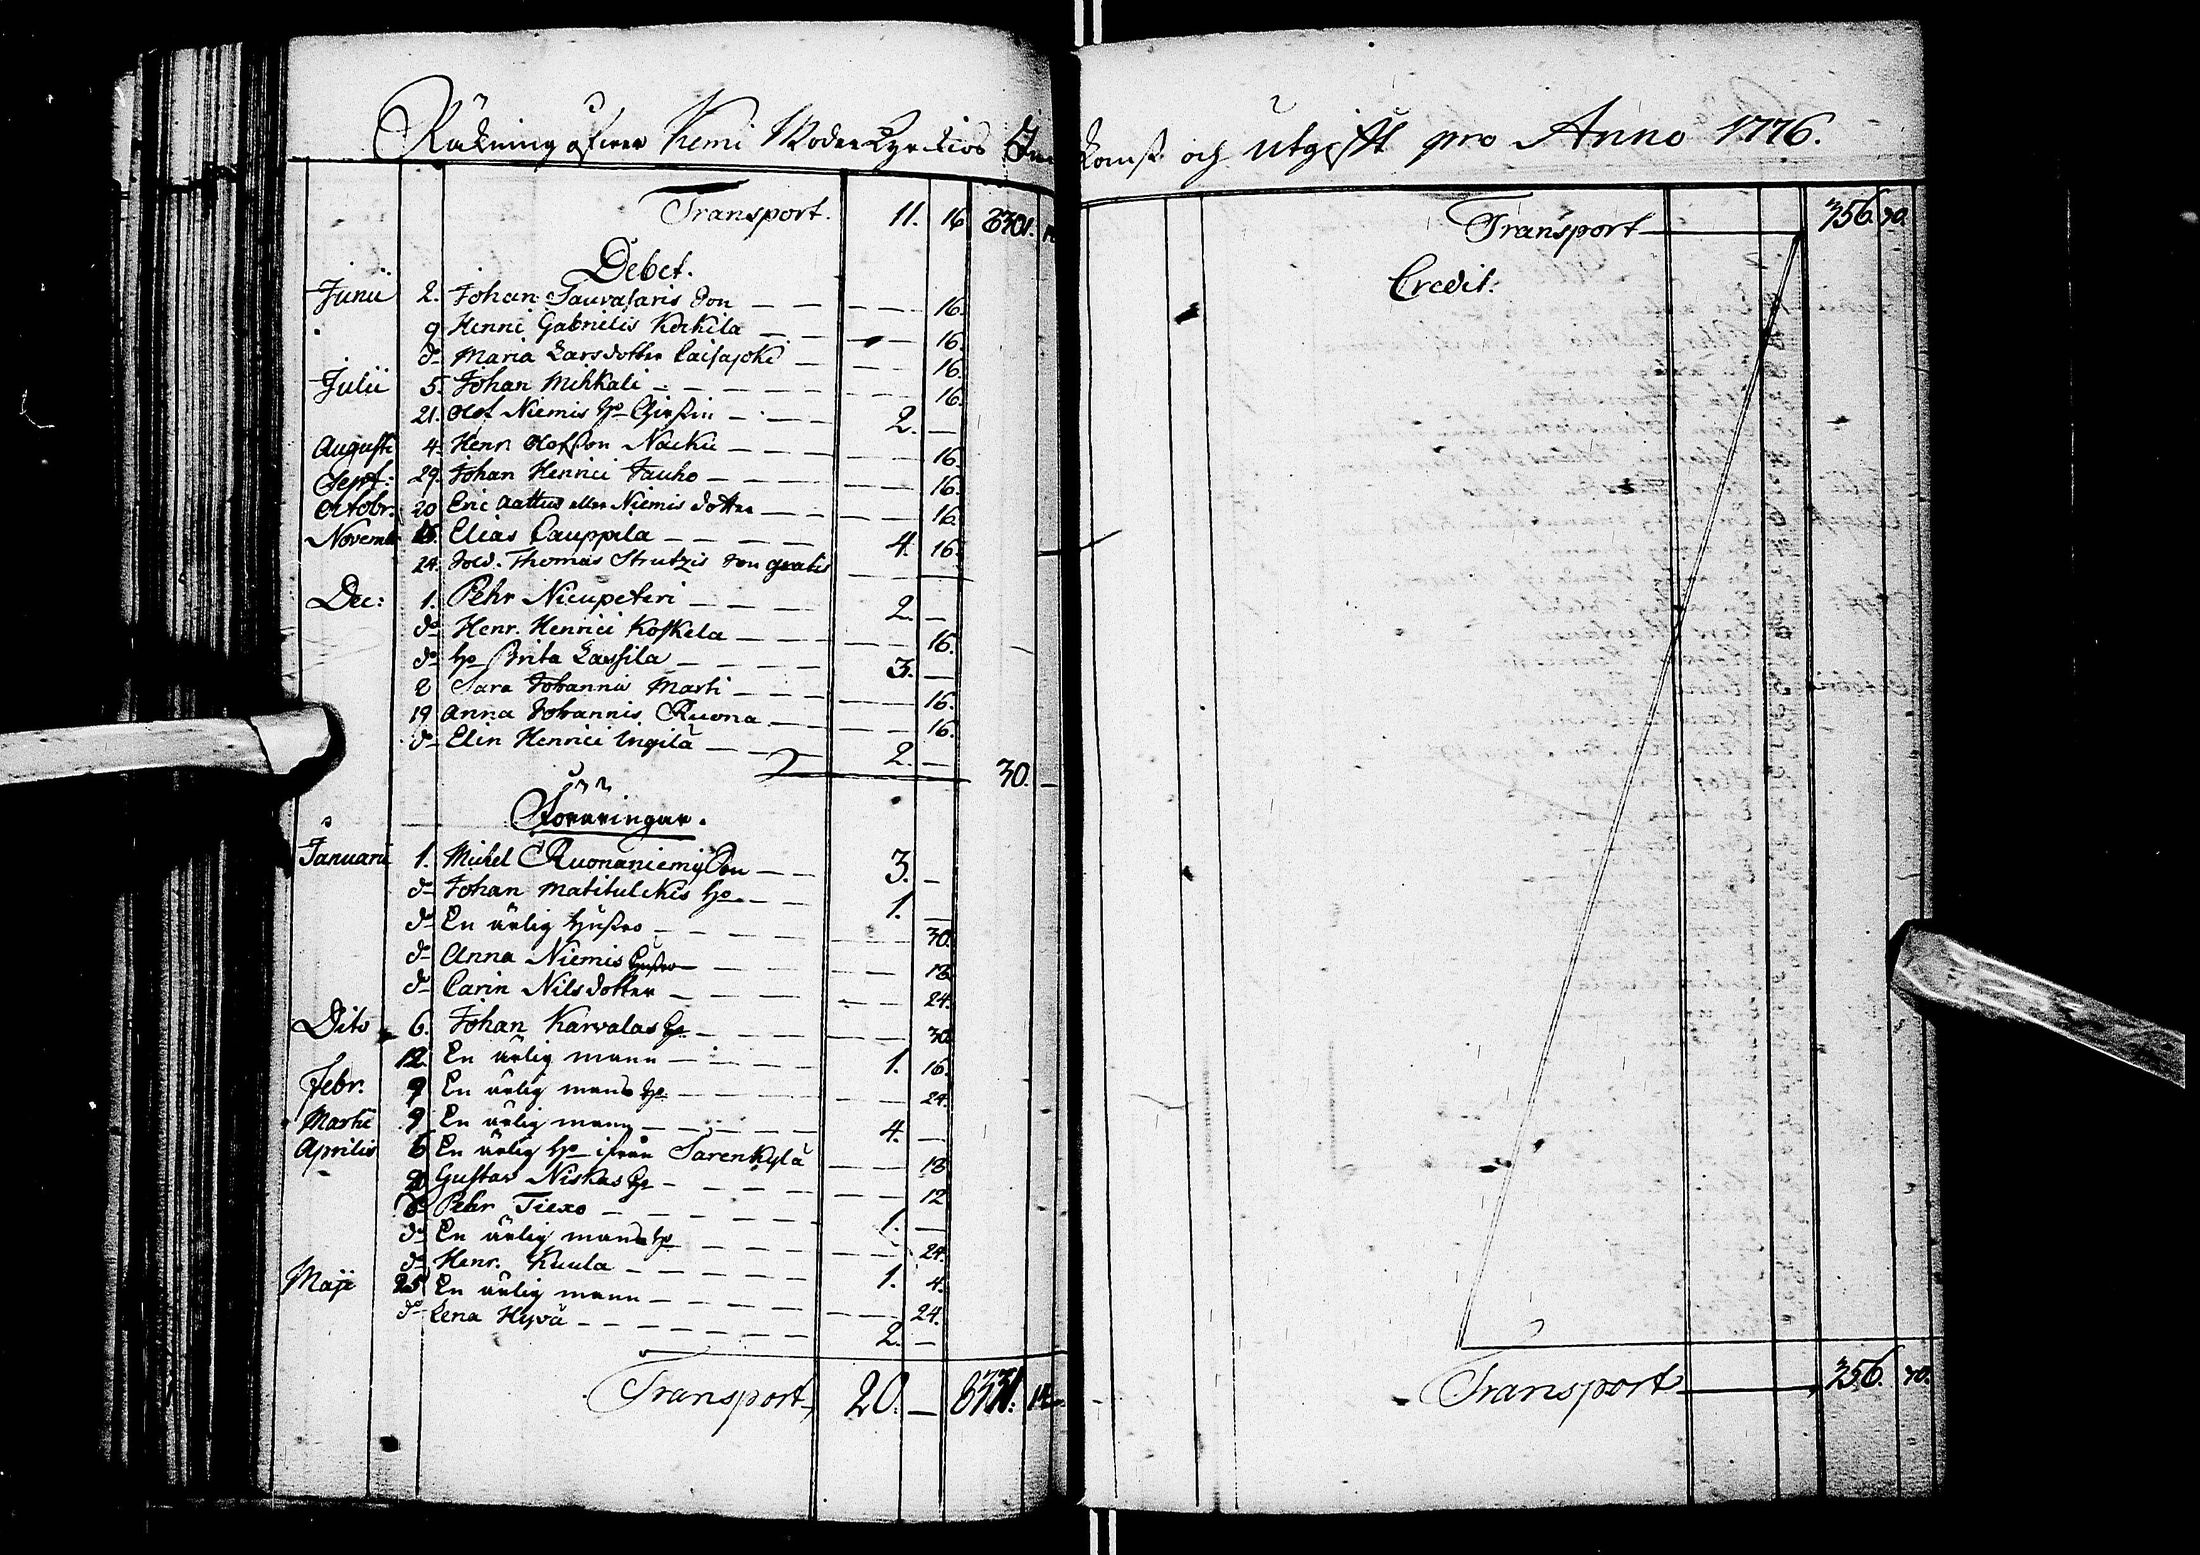 Räkning öfwer Kemi Moderkyrckios Inkomst och Utgift pro Anno 1776.
Transport. 11. 16 8301.
Debet.
Junii 2. Johan Tauvasaris Son 16.
9 Henric Gabrielis Korkila 16.
do Maria Larsdotter Laisapki 16.
Julii 5. Johan Mihkali 16.
21. Olof Niemis ho Kirstin 2. —
Augusti 4. Henr. Olofson Nacku 16.
Sept: 29. Johan Henrici Fauho 16.
Octobr. 20 Eric Aattus eller Niemis dotter 16.
Novemb 16. Elias Lauppila 4. 16.
24. Sold. Thomas Strutzis Son gratis —
Dec: 1. Pehr Nicupeteri 2. —
do Henr. Henrici Koskela 16.
do ho Brita Lassila 3. —
2 Sara Johannis Marti 16.
19 Anna Johannis Ruona 16.
do Elin Henrici Ingilä 2. —
30. —
Föräringar.
Januarii 1. Michel Ruonaniemis Son 3. —
do Johan Matitulckis ho 1. —
do En ärlig hustro 30.
do Anna Niemis hustro 18
do Carin Nilsdotter 24.
Dito 6. Johan Karvalas ho 30
12. En ärlig mann 1. 16.
Febr. 9 En ärlig mans ho 24.
Martii 9. En ärlig mann 4. —
Aprilis 6 En ärlig ho ifrån Sarenkylä 18
Gustav Niskas ho 12
do Pehr Tiexo 1. —
do En ärlig mans ho 24.
do Henr. Kuula 1. 4.
Maji 25 En ärlig mann 24.
do Lena Hyvä 2. —
Transport 20. — 8331. 14
Transport 356. 30.
Credit.
Transport 356. 30.